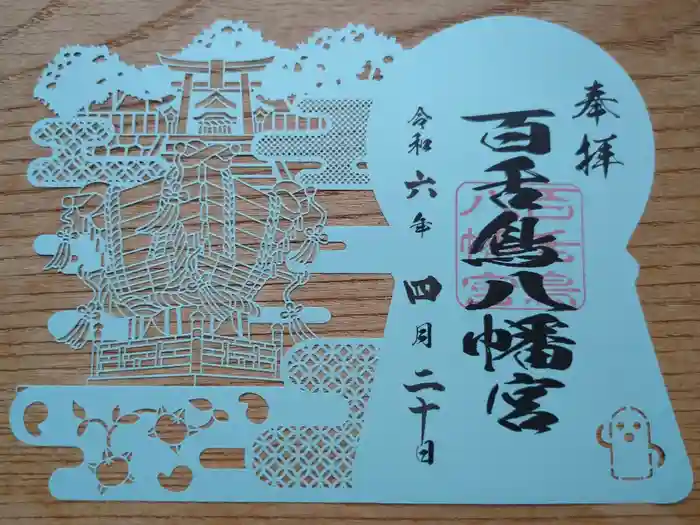 奉拝
百舌鳥八幡宮
令和六年四月二十日
百舌鳥八幡宮